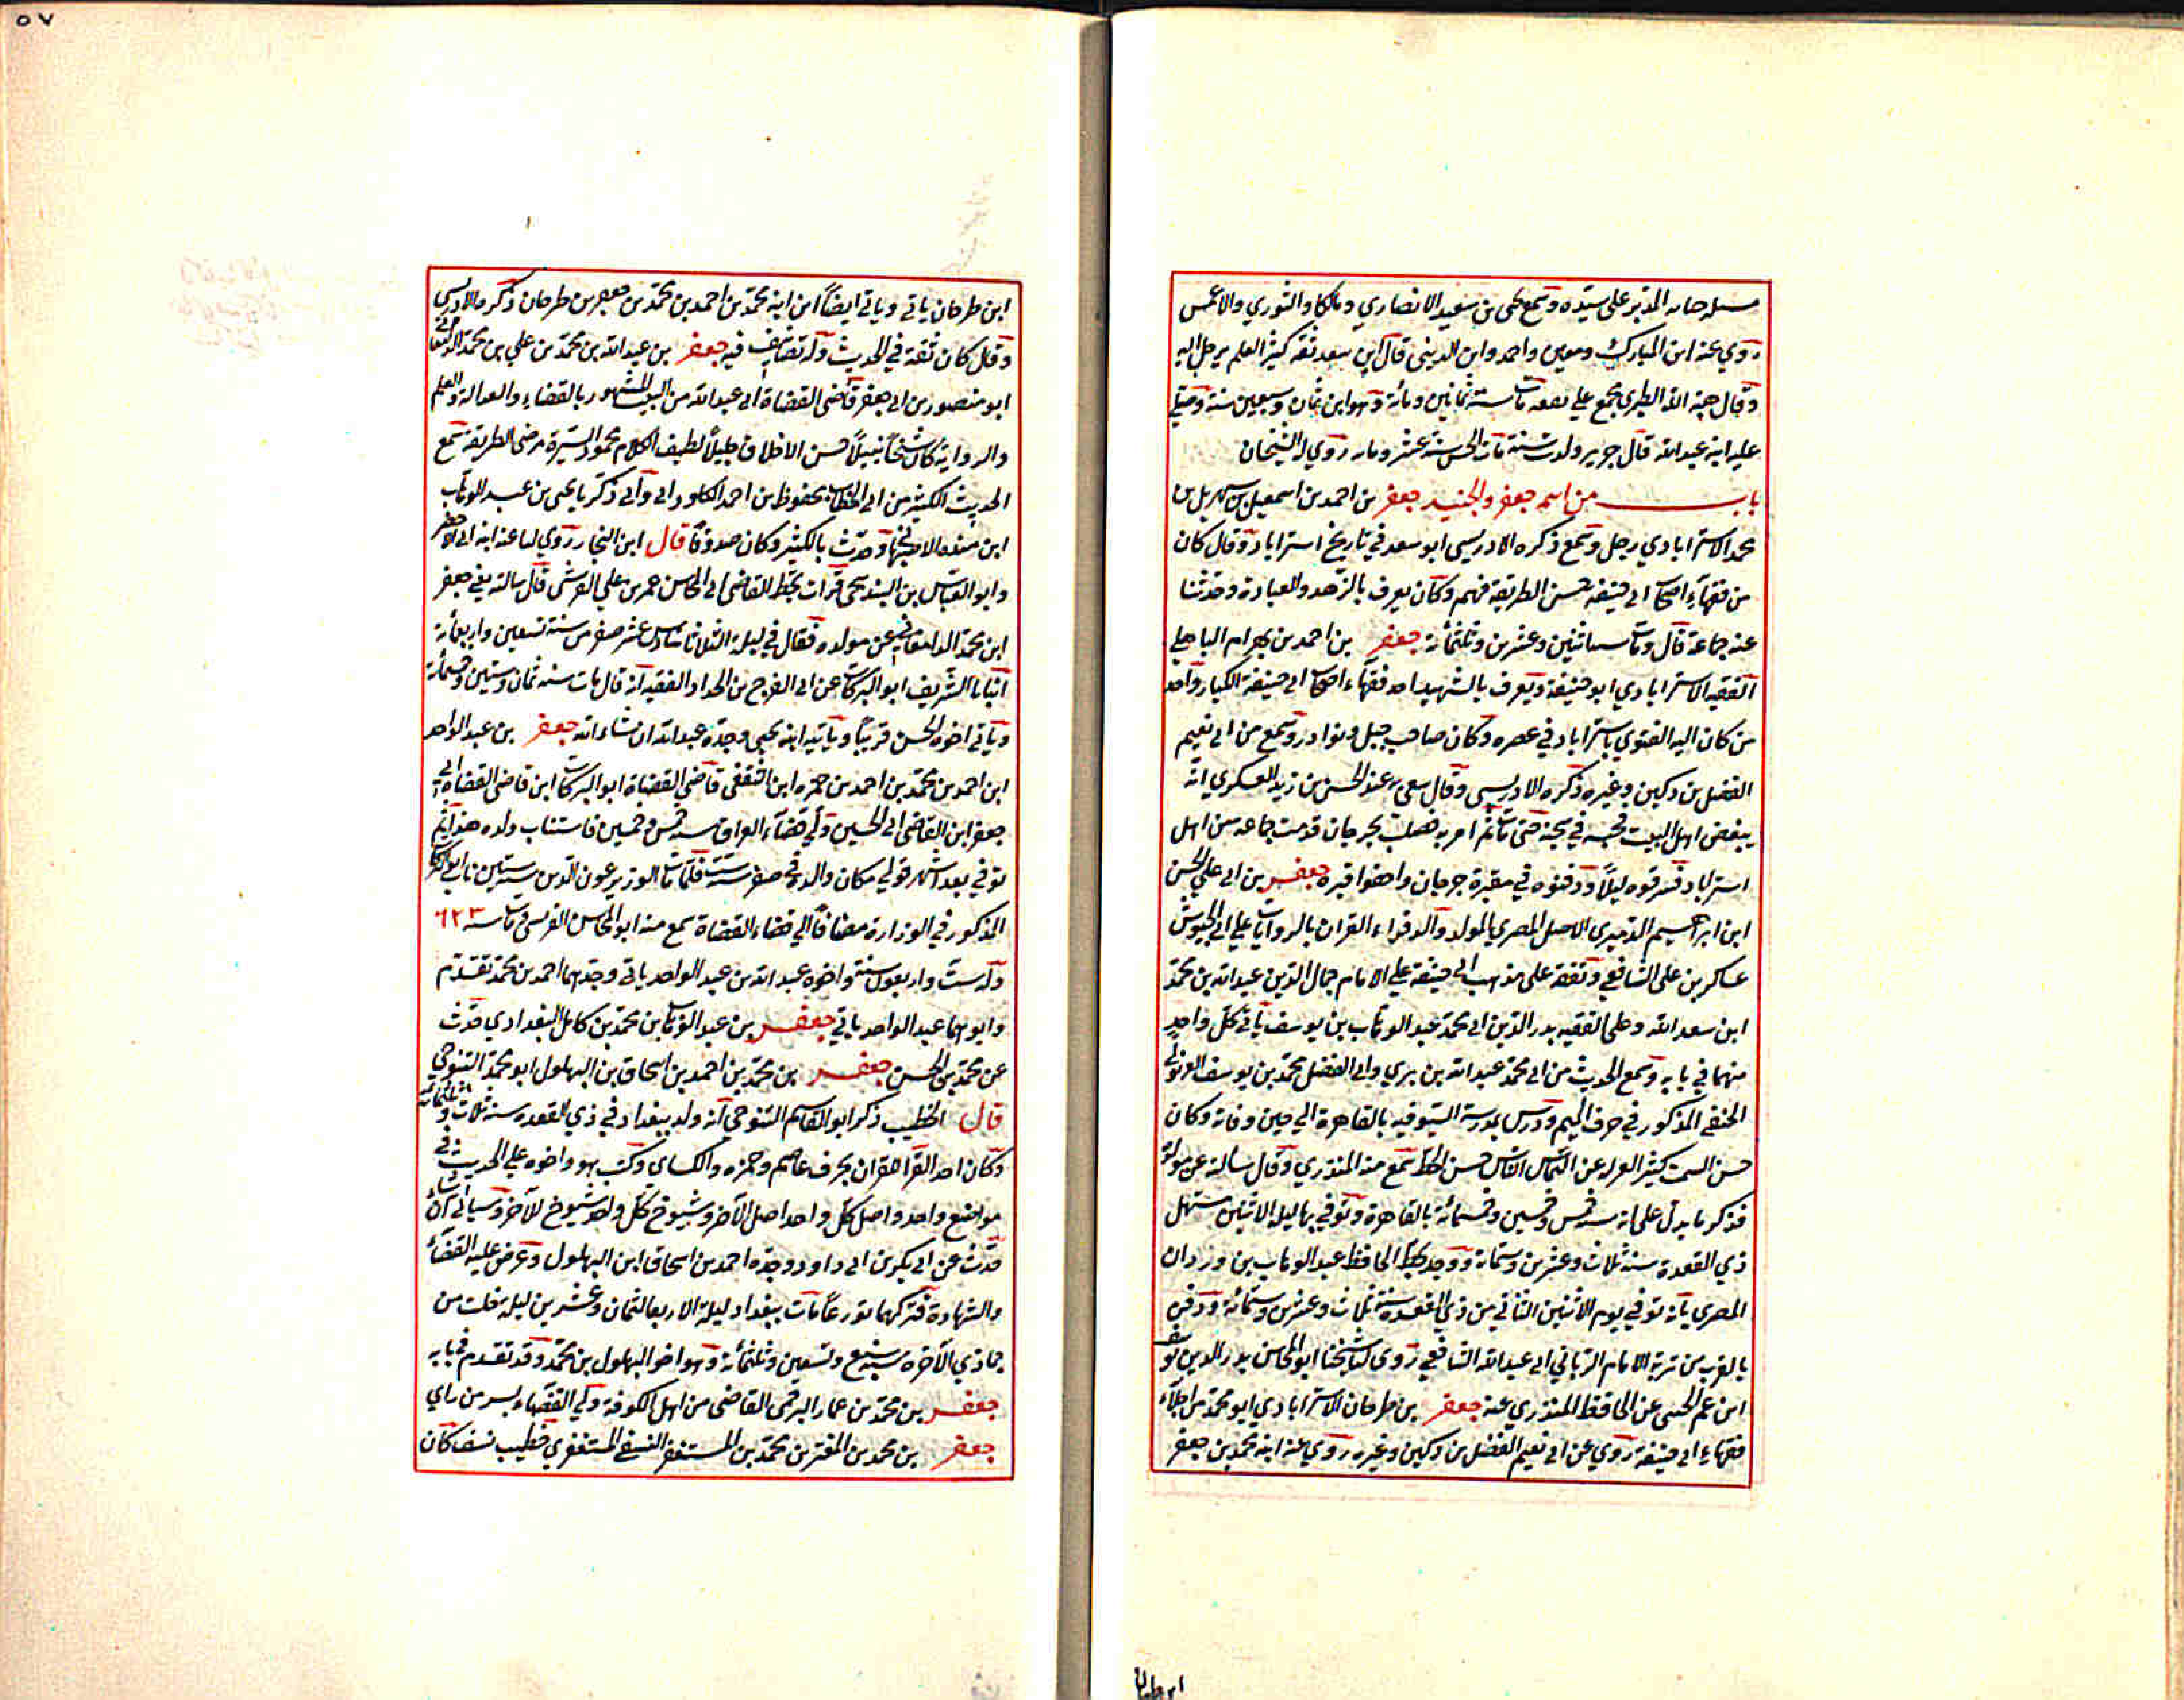 مسئلة جناية المدبر على سيده وسمع يحيى بن سعيد الانصاري ومالكا والثوري والاعمش
روي عنه ابن المبارك ومعين واحمد وابن المديني قال ابن سعد ثقة كثير العلم يرحل اليه
وقال هبة الله الطبري مجمع على ثقته مات سنة ثمانين ومائة وهو ابن ثمان وسبعين سنة وصلي
عليه ابنه عبد الله قال جرير ولدت سنة مات الحسن سنة عشر ومايه روي له الشيخان
باب من اسمه جعفر والجنيد جعفر بن احمد بن اسمعيل بن شهريل بن
محمد الاستراباذي رحل وسمع ذكره الادريسي ابو سعد في تاريخ استراباد وقال كان
من فقهاء اصحاب ابي حنيفة حسن الطريقة فهم وكان يعرف بالزهد والعبادة وحدثنا
عنه جماعة قال ومات سنة اثنين وعشرين وثلثمائة جعفر بن احمد بن بهرام الباهلي
الفقيه الاستراباذي ابو حنيفة ويعرف بالشهيد احد فقهاء اصحاب ابي حنيفة الكبار واحد
من كان اليه الفتوي باستراباد في عصره وكان صاحب حيل ونوادر وسمع من ابي نعيم
الفضل بن دكين وغيره ذكره الادريسي وقال سعى به عند الحسن بن زيد العسكري انه
يبغض اهل البيت فحبسه في سجنه حتى مات ثم امر به فصلب بجرجان قدمت جماعة من اهل
استراباد فسرقوه ليلا ودفنوه في مقبرة جرجان واخفوا قبره جعفر بن ابي علي الحسن
ابن ابراهيم الدميري الاصل المصري المولد والدار قراء القران بالروايات على ابي الجيوش
عساكر بن علي الشافعي وتفقه على مذهب ابي حنيفة على الامام جمال الدين عبد الله بن محمد
ابن سعد الله وعلى الفقيه بدر الدين ابي محمد عبد الوهاب بن يوسف ياتي كل واحد
منهما في بابه وسمع الحديث من ابي محمد عبد الله بن بري وابي الفضل محمد بن يوسف الغزنوي
الحنفي المذكور في حرف الميم ودرس بمدرسة السيوفيه بالقاهرة الى حين وفاته وكان
حسن السمت كثير العزله عن الناس حسن الخط سمع منه المنذري وقال سالته عن مولده
فذكر ما يدل على انه سنة خمس وخمسين وخمسمائة بالقاهرة وتوفي بها ليلة الاثنين مستهل
ذي القعدة سنة ثلاث وعشرين وستمائة ووجد بخط الحافظ عبد الوهاب بن وردان
المصري بانه توفي يوم الاثنين الثاني من ذي القعدة سنة ثلاث وعشرين وستمائة ودفن
بالقرب من تربة الامام الرباني ابي عبد الله الشافعي روى لنا شيخنا ابو المحاسن بدر الدين يوسف
ابن عمر الحسني عن الحافظ المنذري عنه جعفر بن طرخان الاستراباذي ابو محمد من اجلاء
فقهاء ابي حنيفة روي عن ابي نعيم الفضل بن دكين وغيره روي عنه ابنه محمد بن جعفر
٥٧
ابن طرخان ياتي وياتي ايضا ابن ابنه محمد بن احمد بن محمد بن جعفر بن طرخان ذكره الادريسي
وقال كان ثقة في الحديث وله تصانيف فيه جعفر بن عبد الله بن محمد بن علي بن محمد الدامغاني
ابو منصور بن ابي جعفر قاضي القضاة ابي عبد الله من البيت المشهور بالقضاء والعدالة والعلم
والرواية كان شيخا نبيلا حسن الاخلاق جليلا لطيف الكلام محمود السيرة مرضي الطريقة سمع
الحديث الكثير من ابي الخطاب محفوظ بن احمد الكلوذاني وابي زكريا يحيى بن عبد الوهاب
ابن منده الاصبهاني وحدث بالكثير وكان صدوقا قال ابن النجار روي لنا عنه ابنه ابي
وابو العباس بن البندنيجي قرأت بخط القاضي ابي المحاسن عمر بن علي القرشي قال سالته يعني جعفر
ابن محمد الدامغاني عن مولده فقال في ليلة الثلاثا سادس عشر صفر من سنة تسعين واربعمائة
انبانا الشريف ابو البركات عن ابي الفرج بن الحداد الفقيه انه قال مات سنة ثمان وستين وخمسمائة
وياتي اخوه الحسن قريبا وياتيه ابنه يحيى وجده عبد الله ان شاء الله جعفر بن عبد الواحد
ابن احمد بن محمد بن احمد بن حمزه ابن الثقفي قاضي القضاة ابو البركات ابن قاضي القضاة ابي
جعفر ابن القاضي ابي الحسين ولي قضاء العراق سنة خمس وخمسين فاستناب ولده هذا ثم
توفي بعد اشهر فولي مكان والده في صفر سنة ست فلما مات الوزير عون الدين سنة ستين ناب ابو البركات
المذكور في الوزارة مضافا الي قضاء القضاة سمع منه ابو المحاسن القرشي مات سنة ٦٢٣
وله ست واربعون سنة واخوه عبد الله بن عبد الواحد ياتي وجدهما احمد بن محمد تقدم
وابوهما عبد الواحد ياتي جعفر بن عبد الوهاب بن محمد بن كامل البغدادي حدث
عن محمد بن الحسن جعفر بن محمد بن احمد بن اسحاق بن البهلول ابو محمد التنوخي
قال الخطيب ذكر ابو القاسم التنوخي انه ولد ببغداد في ذي القعده سنة ثلاث وثلاثمائة
وكان احد القرا للقران بحرف عاصم وحمزه والكساي وكتب هو واخوه علي الحديث في
مواضع واحد واصل كل واحد اصل الآخر وشيوخ كل واحد شيوخ للآخر وسياتي ان شاء
حدث عن ابي بكر بن ابي داود وجده احمد بن اسحاق ابن البهلول وعرض عليه القضاء
والشهادة فتركهما تورعا مات ببغداد ليلة الاربعا لثمان وعشرين ليلة خلت من
جمادي الآخره سنة سبع وتسعين وثلثمائة وهو اخو البهلول بن محمد وقد تقدم في بابه
جعفر بن محمد بن عمار البرجمي القاضي من اهل الكوفة ولي القضاء بسر من راي
جعفر بن محمد بن المعتز بن محمد بن المستغفر النسفي المستغفري خطيب نسف كان